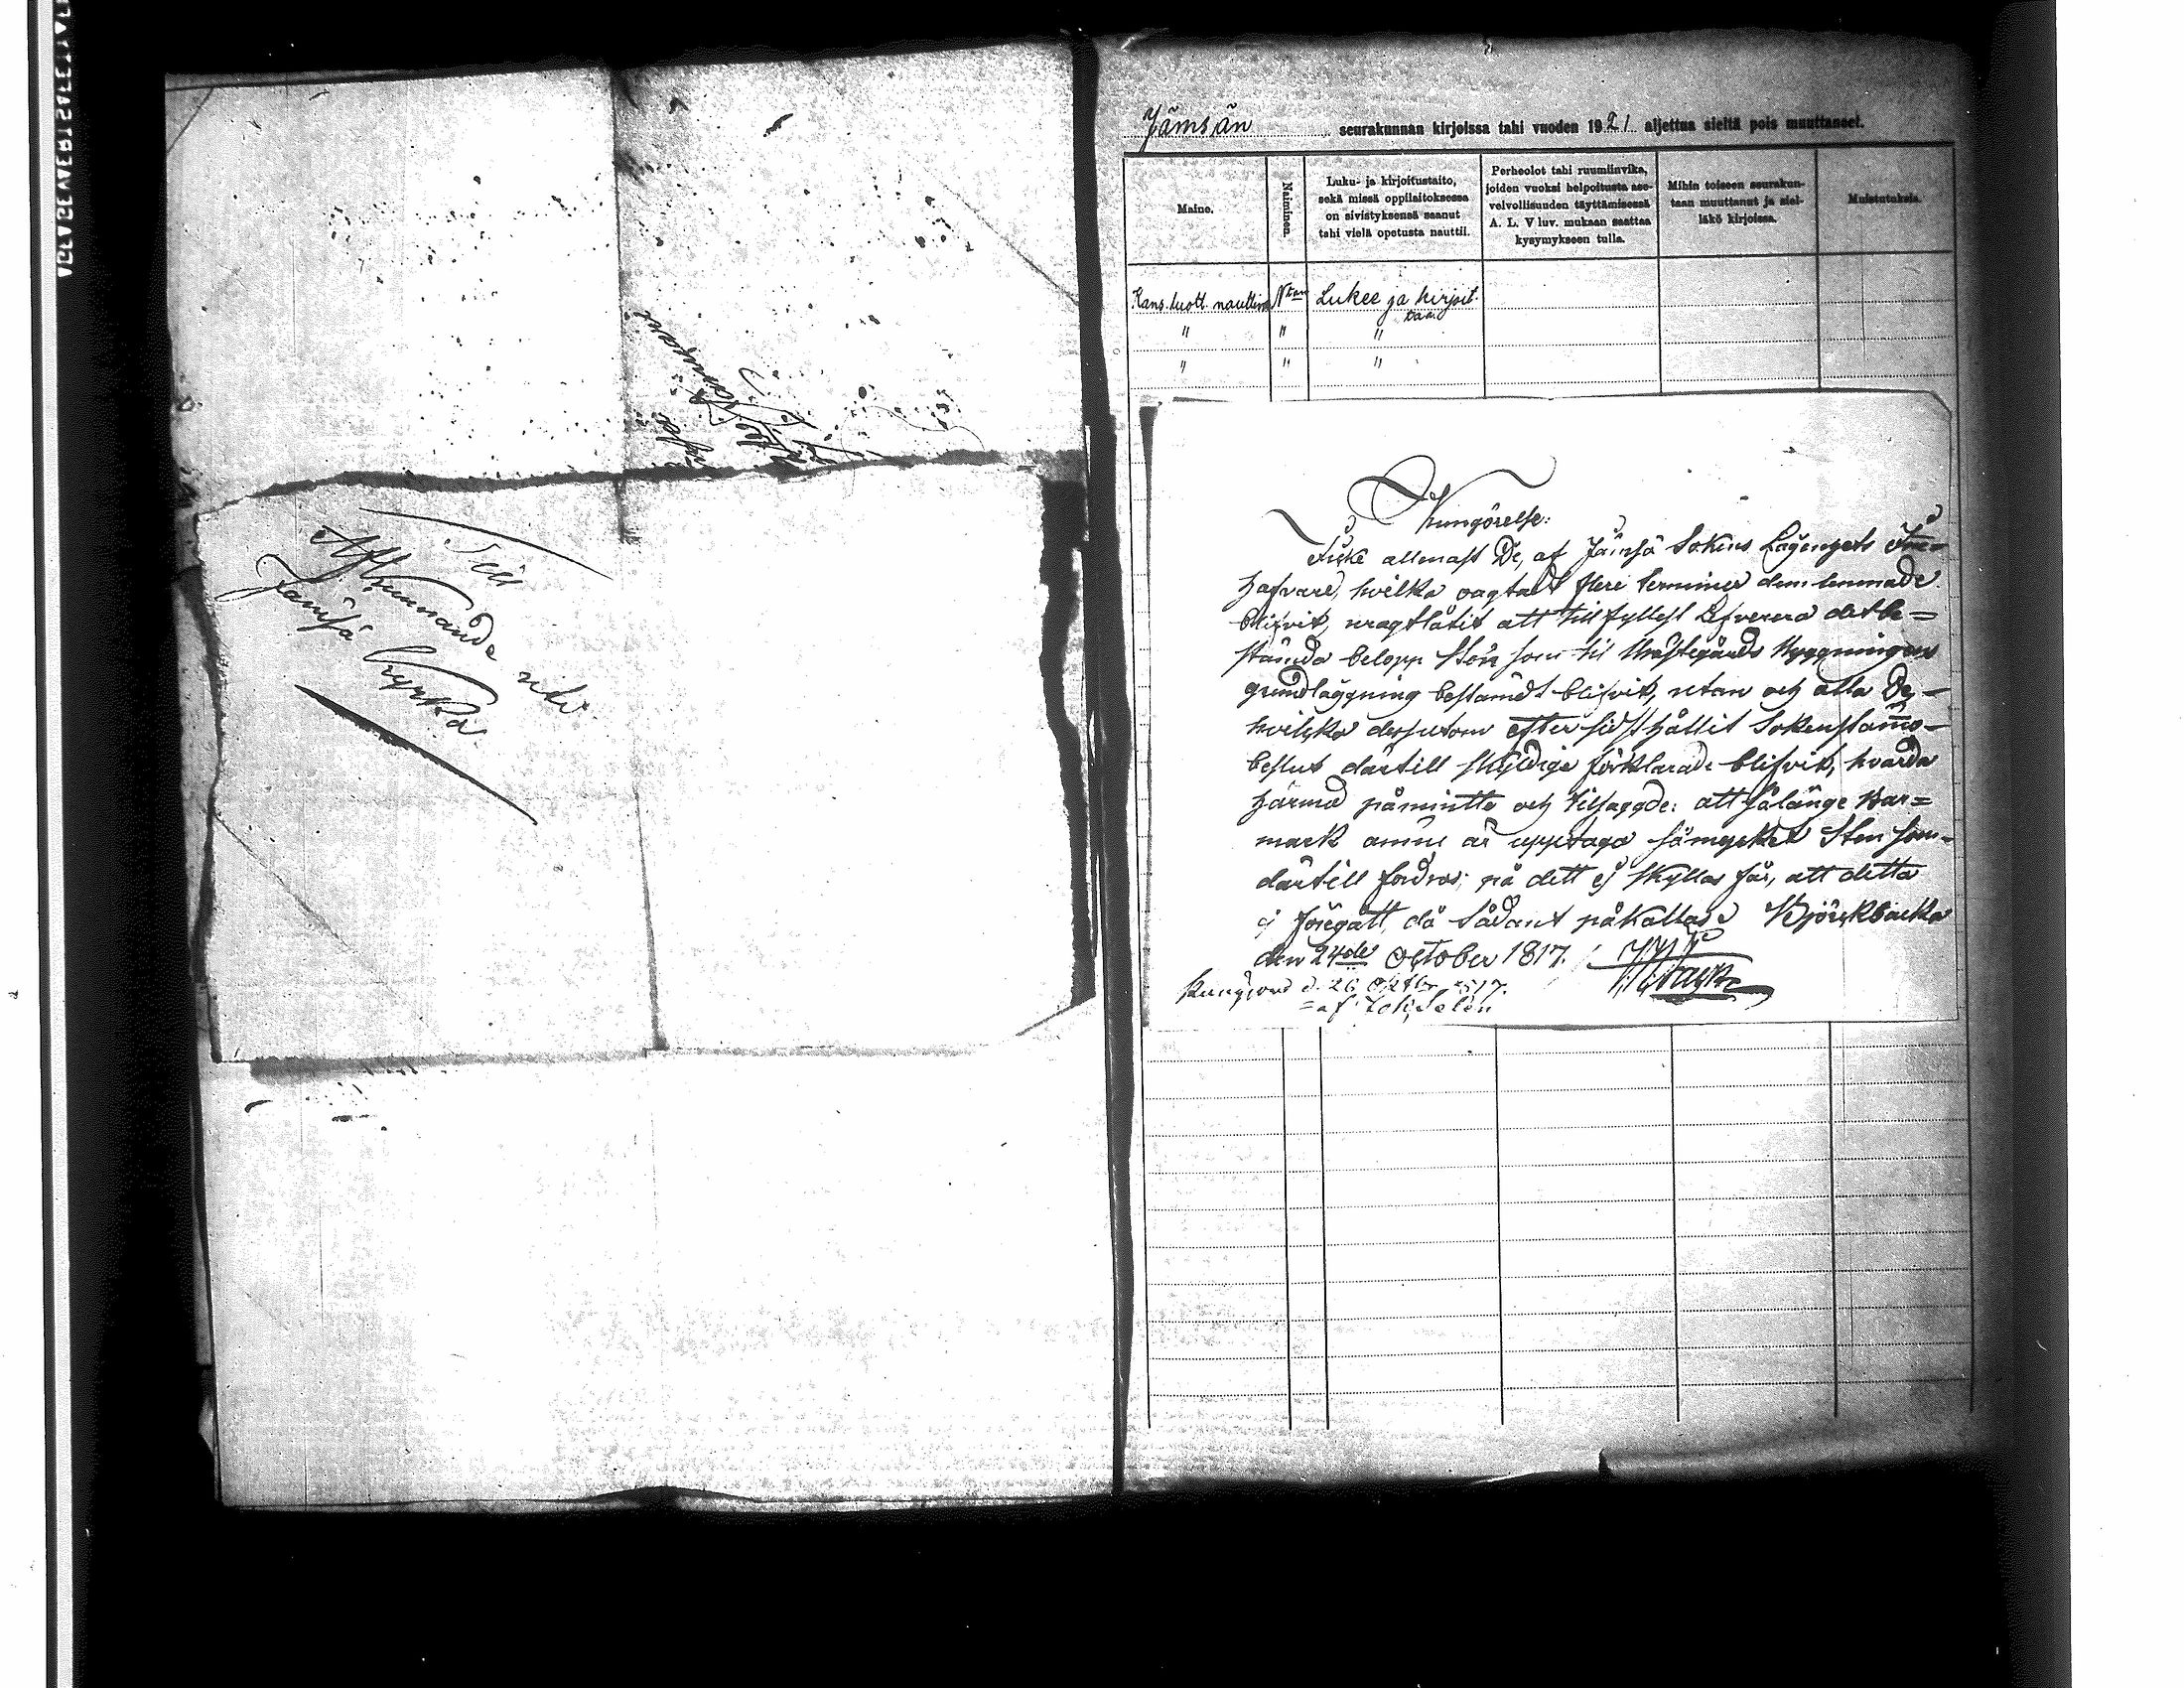 Till
Afkunnande uti
Jämsä Kyrka
Jämsän seurakunnan kirjoissa tahi vuoden 1921 aljettua sieltä pois muuttaneet.
Maine.
Naiminen.
Luku- ja kirjoitustaito, sekä missä oppilaitoksessa on sivistyksensä saanut tahi vielä opetusta nauttii.
Perheolot tahi ruumiinvika, joiden vuoksi helpoitusta asevelvollisuuden täyttämisessä A. L. V luv. mukaan saattaa kysymykseen tulla.
Mihin toiseen seurakuntaan muuttanut ja sielläkö kirjoissa.
Muistutuksia.
Kans. luott. nauttiva Ntön Lukee ja kirjoit-
taa.
" " "
" " "
Kungörelse:
allenast De, af Jämsä Sokens Lägenhets Inne-
hafvare, hvilka oagtadt flere terminer dem lemnade
blifvit, uragtlåtit att till fyllest lefverera det be=
stämda belopp Sten som til Prästegårds Byggningens
grundläggning bestämdt blifvit, utan och alla De,
hvilka dessutom efter sidst hållit Sokenstämo-
beslut därtill skyldige förklarade blifvit, hvarda
härmed påmintte och tilsagde: att så länge Bar=
mark ännu är upptaga så mycket Sten som
därtill fordras; på dett ej skyllas får, att detta
ej föregått, då sådant påkallas. Björkbacka
den 24de October 1817.
Kungjord d. 26 Oktbr 1817.
=af Joh, Selén